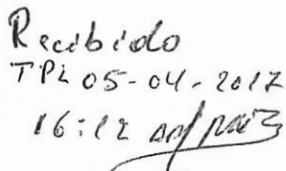 Recibido
TPL 05-04-2017
16:12